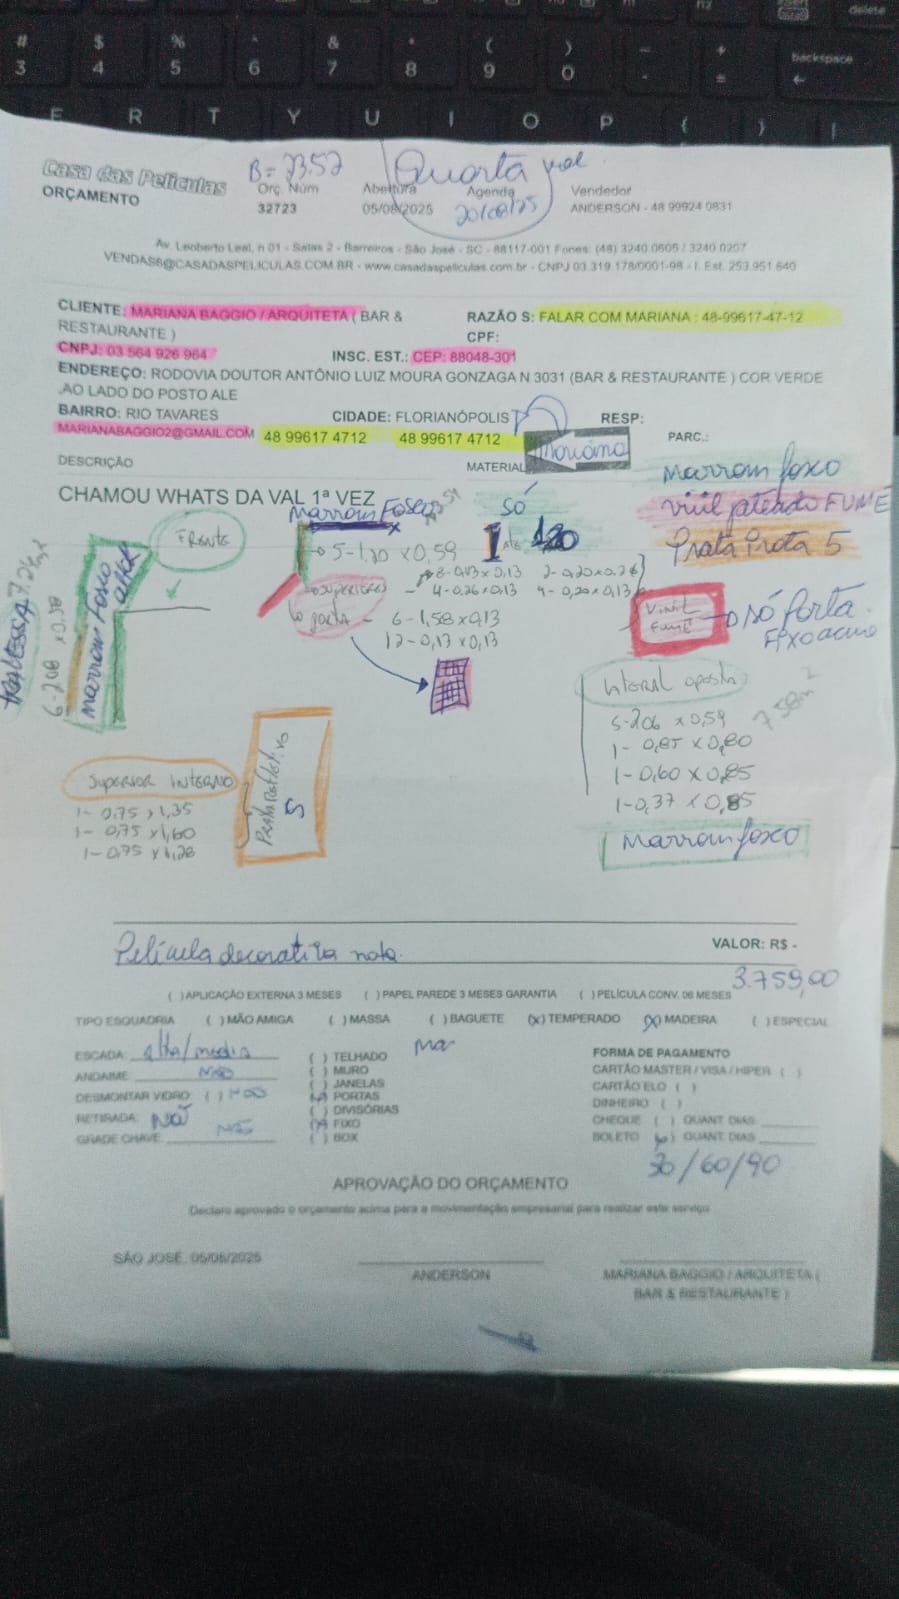 # $ % & * ( ) - +
3 4 5 6 7 8 9 0 - =
backspace
delete
E R T Y U I O P { }
Casa das Películas
B=7357
Quarta
ORÇAMENTO
Orç. Núm
Abertura
Agenda
Vendedor
32723
05/08/2025
20/08/25
ANDERSON - 48 99924 0831
Av. Leoberto Leal, n 01 - Salas 2 - Barreiros - São José - SC - 88117-001 Fones: (48) 3240.0605 / 3240 0207
VENDAS6@CASADASPELICULAS.COM.BR - www.casadaspeliculas.com.br - CNPJ 03.319.178/0001-98 - I. Est. 253.951.640
CLIENTE: MARIANA BAGGIO / ARQUITETA ( BAR &
RESTAURANTE )
RAZÃO S: FALAR COM MARIANA : 48-99617-47-12
CPF:
CNPJ: 03 564 926 964
INSC. EST.: CEP: 88048-301
ENDEREÇO: RODOVIA DOUTOR ANTÔNIO LUIZ MOURA GONZAGA N 3031 (BAR & RESTAURANTE ) COR VERDE
,AO LADO DO POSTO ALE
BAIRRO: RIO TAVARES
CIDADE: FLORIANÓPOLIS
RESP:
MARIANABAGGIO2@GMAIL.COM 48 99617 4712 48 99617 4712
Mariana
PARC.:
DESCRIÇÃO
MATERIAL
Marrom foxo
CHAMOU WHATS DA VAL 1ª VEZ
Marrom Fosco
SÓ
viúl jateado FUMÊ
FRENTE
5-1,20 x 0,59
1 Até 1,20
Prata Prata 5
8-0,13 x 0,13 2-0,20 x 0,26
SUPERIORES - 4-0,26 x 0,13 4-0,20 x 0,13
porta - 6-1,58 x 0,13
12-0,13 x 0,13
VINIL
FUMÊ
só porta.
FIXO acima
TRAVESSA 7,24m²
6-208 x 0,58
Marrom Foxo
lateral oposta
7,58m²
5-206 x 0,59
1-0,85 x 0,80
1-0,60 x 0,85
1-0,37 x 0,85
Marrom foxo
SUPERIOR INTERNO
1-0,75 x 1,35
1-0,75 x 1,60
1-0,75 x 1,28
Prata Refletivo
5
Película decorativa nota.
VALOR: R$ -
3.759,00
( )APLICAÇÃO EXTERNA 3 MESES ( ) PAPEL PAREDE 3 MESES GARANTIA ( ) PELÍCULA CONV. 06 MESES
TIPO ESQUADRIA ( ) MÃO AMIGA ( ) MASSA ( ) BAGUETE (x) TEMPERADO (x) MADEIRA ( ) ESPECIAL
ESCADA: alta/media
( ) TELHADO
Mar
FORMA DE PAGAMENTO
ANDAIME: Não
( ) MURO
CARTÃO MASTER / VISA / HIPER ( )
( ) JANELAS
CARTÃO ELO ( )
DESMONTAR VIDRO: ( ) Não
(x) PORTAS
DINHEIRO ( )
RETIRADA: Não
( ) DIVISÓRIAS
CHEQUE ( ) QUANT DIAS
(x) FIXO
GRADE CHAVE: Não
( ) BOX
BOLETO (x) QUANT. DIAS
30/60/90
APROVAÇÃO DO ORÇAMENTO
Declaro aprovado o orçamento acima para a movimentação empresarial para realizar este serviço
SÃO JOSÉ. 05/08/2025
ANDERSON
MARIANA BAGGIO / ARQUITETA (
BAR & RESTAURANTE )